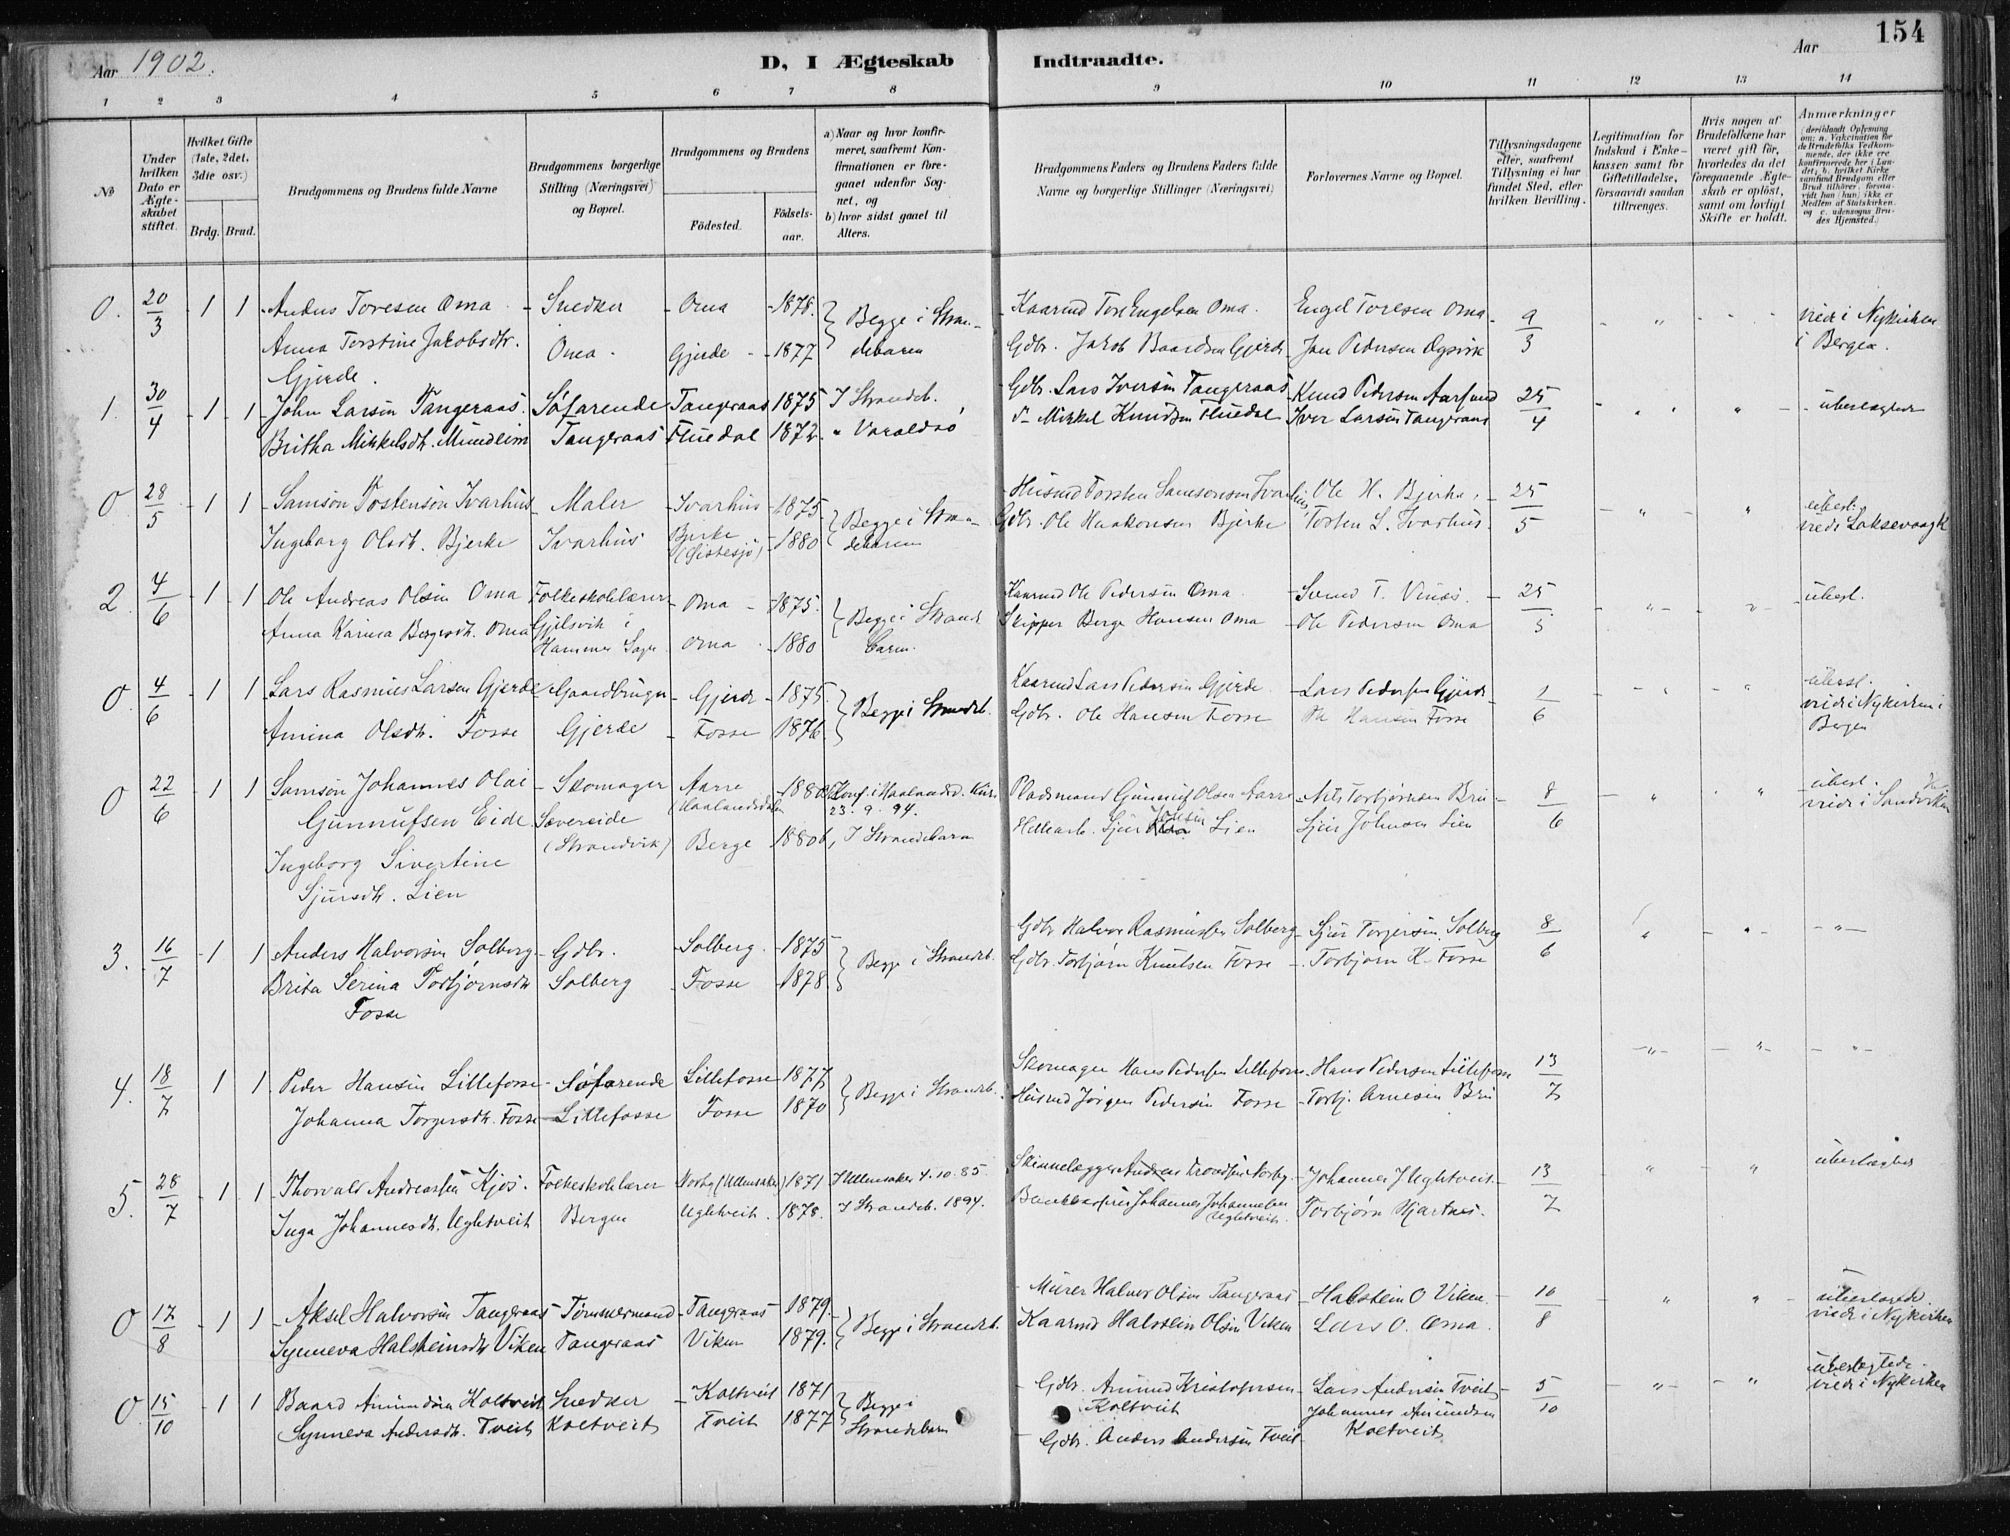 Aar 1902.
D, I Ægteskab Indtraadte.
Aar
154
1 2 3 4 5 6 7 8 9 10 11 12 13 14
№
Under hvilken Dato er Ægteskabet stiftet.
Hvilket Gifte (1ste, 2det, 3die osv.)
Brdg. Brud.
Brudgommens og Brudens fulde Navne
Brudgommens borgerlige Stilling (Næringsvei) og Bopæl.
Brudgommens og Brudens
Fødested. Fødselsaar.
a) Naar og hvor konfirmeret, saafremt Konfirmationen er foregaaet udenfor Sognet, og
b) hvor sidst gaaet til Alters.
Brudgommens Faders og Brudens Faders fulde Navne og borgerlige Stillinger (Næringsvei)
Forlovernes Navne og Bopæl.
Tillysningsdagene eller, saafremt Tillysning ei har fundet Sted, efter hvilken Bevilling.
Legitimation for Indskud i Enkekassen samt for Giftetilladelse, forsaavidt saadan tiltrænges.
Hvis nogen af Brudefolkene har været gift før, hvorledes da det foregaaende Ægteskab er opløst, samt om lovligt Skifte er holdt.
Anmærkninger (deriblandt Oplysning om: a. Vakcination for de Brudefolks Vedkommende, der ikke ere konfirmerede her i Landet; b. hvilket Kirkesamfund Brudgom eller Brud tilhører, forsaavidt han (hun) ikke er Medlem af Statskirken, og c. udensogns Brudes Hjemsted.)
0. 20/3 - 1 1 - Anders Toresen Oma - Snedker - Oma - 1878. Begge i Stran- - Kaarmd Tore Engelsen Oma. Engel Toresen Oma - 9/3 - " - viedi Nykirken
Anna Torstine Jakobsdtr. Oma - Gjerde - 1877 debarm Gdbr. Jakob Baardsen Gjerde - Jan Pedersen i Bergen.
Gjerde.
1. 30/4 - 1 - 1 - John Larsen Tangeraas. Søfarende Tangeraas 1875 I Strandeb. - Gdbr. Lars Iversen Tangeraas - Knud Pedersen 25/4 - " " - uberlagte
Britha Mikkelsdtr. Mundheim Tangeraas Fluedal 1872. " Varaldsø Mikkel Knudsen Fluedal Iver Larsen Tangeraas
0 28/5 - 1 1 - Samson Tostenson Ivarhus - Maler - Ivarhus - 1875 Begge i Stran- - Husmd Torsten Samsonsen Ivarhus Ole H. Bjerke. - 25/5 - " " uberl.
Ingeborg Olsdtr. Bjerke Ivarhus Bjerke 1880 debarm Gdbr. Ole Haakonsen Bjerke Torsten S. Ivarhus. vied i Laksevaag K
2 4/6 - 1 1 - Ole Andreas Olsen Oma Folkeskolelærer - Oma - 1875. Begge i Strand Kaarmd Ole Pedersen Oma - Svend T. Vinæs. - 25/5 - " " - uberl.
Anna Karina Bergesdtr. Oma Gjelsvik i Hammer Sogn Oma - 1880 barm. Skipper Berge Hansen Oma - Ole Pedersen Oma
0 4/6 - 1 1 - Lars Rasmus Larsen Gjerde Gaardbruger - Gjerde - 1875. Begge i Strandeb. Kaarmd Lars Pedersen Gjerde - Lars Pedersen Gjerde 1/6 - " " uberl.
Amina Olsdtr. Fosse Gjerde - Fosse 1876 Gdbr. Ole Hansen Fosse Hansen Fosse viedi Nykirken i
Bergen
0 22/6 - 1 1 - Samson Johannes Olai - Skomager Aarre - 1880 a, Konf. i Haalandsd. Kirke Pladsmand Gunnuf Olsen Aarre - Nils Torbjørnsen Bru - 8/6 - " " - uberl.
Gunnufsen Eide Sævareide (Haalandsdalen 23. 9. 94. viedi i Sandviken
Ingeborg Sivertine (Strandvik) Berge 1880 b, I Strandebarm Hellearb. Sjur Johnsen Lien Sjur Johnsen Lien
Sjursdtr. Lien
3. 16/7 - 1 1 - Anders Halvorsen Solberg - Gdbr. - Solberg - 1875 Begge i Strandeb. - Gdbr. Halvor Rasmussen Solberg - Sjur Torgersen Solberg 8/6 " - " - - " -
Brita Serina Torbjørnsdtr Solberg - Fosse - 1878. Gdbr. Torbjørn Knutsen Fosse - Torbjørn K. Fosse
Fosse
4. 18/7 1 1 - Peder Hansen Lillefosse - Søfarende Lillefosse - 1877 Begge i Strandeb. Skomager Hans Pedersen Lillefosse - Hans Pedersen Lillefosse 13/7 - " - - " - - " -
Johanna Torgersdtr. Fosse - Lillefosse Fosse 1870 Husmd Jørgen Pedersen Fosse - Torbj. Arnesen Bru
5. 28/7 - 1 1 - Thorvald Andreassen Kjos. Folkeskolelærer Norby (Ullensaker) 1871 I Ullensaker 4.10.85 Skinnelægger Andreas Norby. - Johannes J Ughtveit - 13/7 " " uberlagte
Inga Johannesdtr. Ughtveit Bergen Ughtveit. 1878. I Strandeb. 1894. Johannes Johannesen Ughtveit. Torbjørn
0 17/8 - 1 1 - Aksel Halvorsen Tangeraas - Tømmermand - Tangeraas 1879. Begge i Strandeb. - Murer Halvor Olsen Tangeraas - Halstein O Viken. - 10/8 " " - uberlagte
Synneva Halsteinsdtr Viken Tangeraas Viken 1879. Kaarmd Halstein Olsen Viken Lars O. Oma. viedi i Nykirken
0. 15/10 - 1 1 Baard Amundsen Koltveit Snedker - Koltveit 1871 Begge i - Gdbr. Amund Kristofersen - Lars Andersen Tveit 5/10 - " - - " uberlagtede.
Synneva Andersdtr. Tveit Koltveit Tveit 1877 Strandebarm Koltveit Johannes Amundsen viedi i Nykirken
- Gdbr. Anders Andersen Tveit - Koltveit